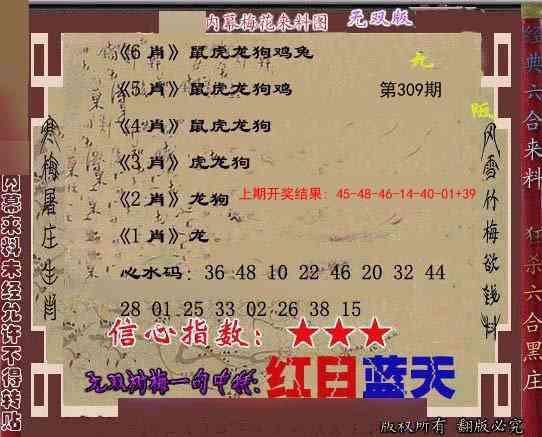 内幕梅花来料图 无双版
《6 肖》鼠虎龙狗鸡兔
《5 肖》鼠虎龙狗鸡 第309期
《4 肖》鼠虎龙狗
《3 肖》虎龙狗
《2 肖》龙狗
上期开奖结果：45-48-46-14-40-01+39
《1 肖》龙
心水码：36 48 10 22 46 20 32 44
28 01 25 33 02 26 38 15
信心指数：★★★
无双 梅一的中 :红日蓝天
版权所有 翻版必究
寒梅屠庄生肖
风雪竹梅欲钱料
内幕来料未经允许不得转贴
经典六合来料
狂杀六合黑庄